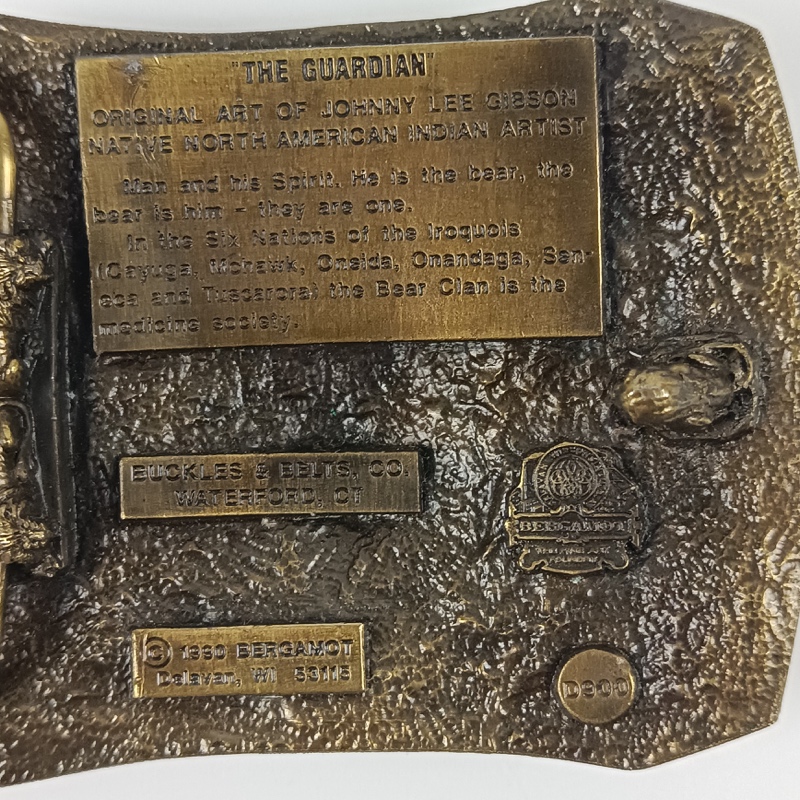 "THE GUARDIAN"
ORIGINAL ART OF JOHNNY LEE GIBSON
NATIVE NORTH AMERICAN INDIAN ARTIST
Man and his Spirit. He is the bear, the
bear is him - they are one.
In the Six Nations of the Iroquois
(Cayuga, Mohawk, Oneida, Onandaga, Sen-
eca and Tuscarora) the Bear Clan is the
medicine society.
BUCKLES & BELTS, CO.
WATERFORD, CT
BERGAMOT
© 1990 BERGAMOT
Delavan, WI 53115
D900